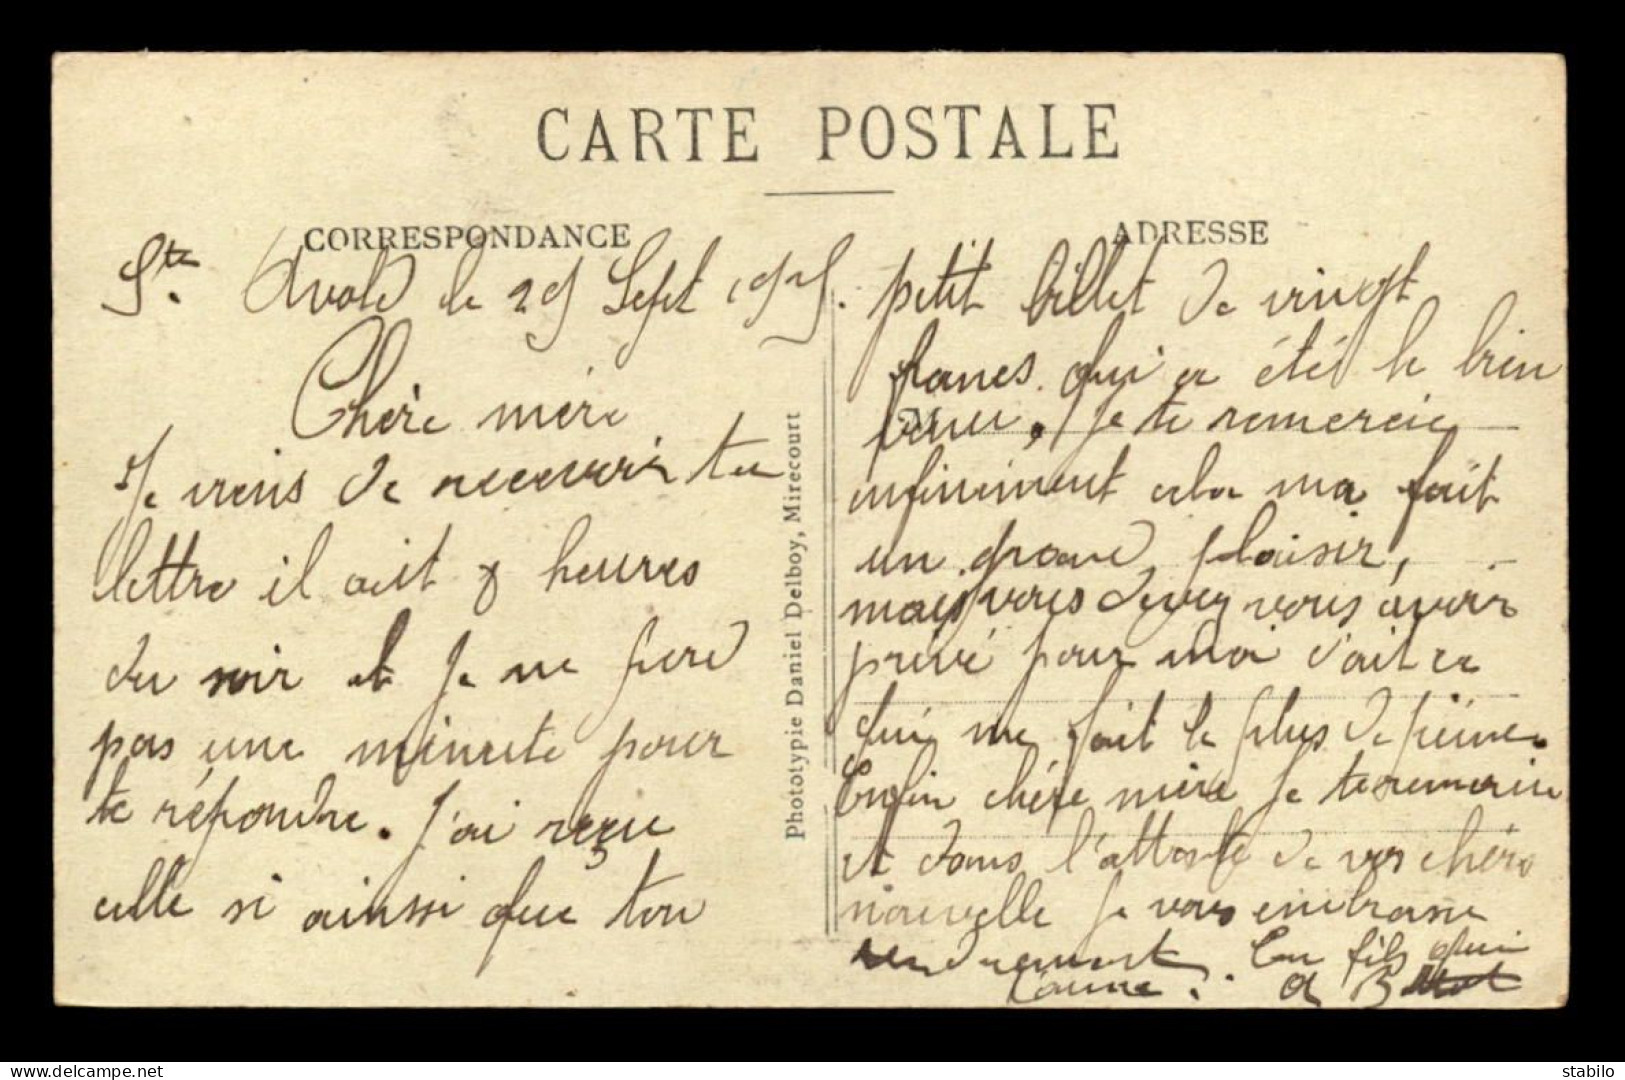 CARTE POSTALE
CORRESPONDANCE
Ste. Avold le 29 Sept 1925.
Chère mère
Je viens de recevoir ta
lettre il ait 8 heures
du soir et je ne perd
pas une minute pour
te répondre. J'ai reçu
celle si ainssi que ton
Phototypie Daniel Delboy, Mirecourt
ADRESSE
petit billet de vingt
franes. qui a été le bien
venu, je te remercie
infiniment cela ma fait
un grand plaisir,
mais vous devez vous avoir
privé pour moi s'ait ce
qui me fait le plus de peine.
Enfin chère mère je te remercie
et dans l'attente de vos chéro
nouvelle je vous embrasse
tendrement. Ton fils qui
t'aime. a B
stabilo
www.delcampe.net